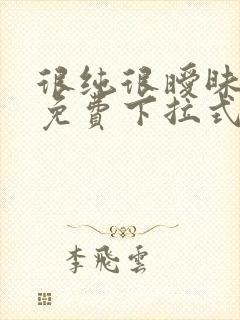 很纯很暧昧
免費下拉式
李飛雲